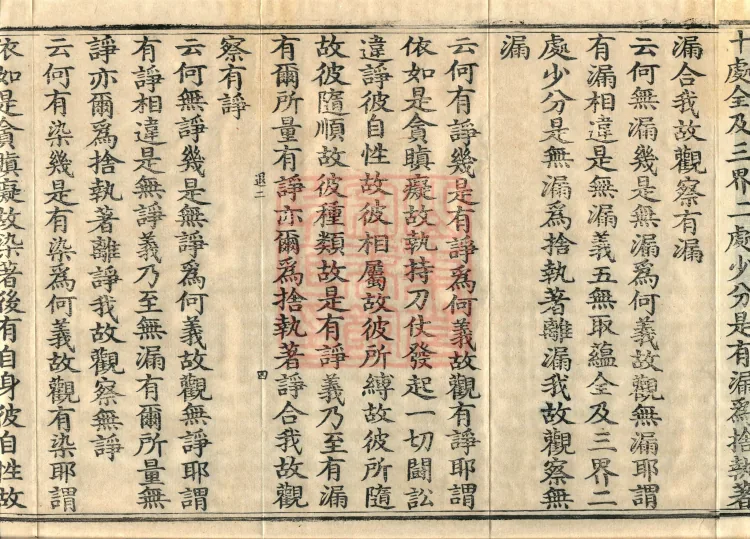 十處全及三界二處少分是有漏爲捨執著
漏合我故觀察有漏
云何無漏幾是無漏爲何義故觀無漏耶謂
有漏相違是無漏義五無取蘊全及三界二
處少分是無漏爲捨執著離漏我故觀察無
漏
云何有諍幾是有諍爲何義故觀有諍耶謂
依如是貪瞋癡故執持刀仗發起一切鬪訟
違諍彼自性故彼相屬故彼所縛故彼所隨
故彼隨順故彼種類故是有諍義乃至有漏
有爾所量有諍亦爾爲捨執著諍合我故觀
退二
四
察有諍
云何無諍幾是無諍爲何義故觀無諍耶謂
有諍相違是無諍義乃至無漏有爾所量無
諍亦爾爲捨執著離諍我故觀察無諍
云何有染幾是有染爲何義故觀有染耶謂
依如是貪瞋癡故染著後有自身彼自性故